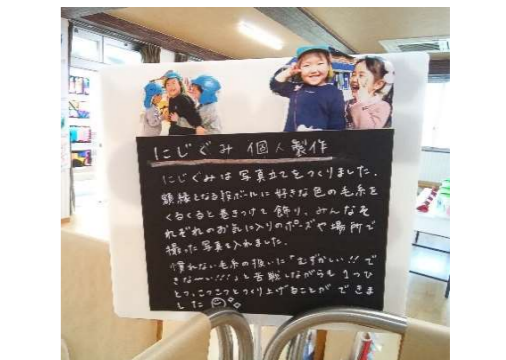 にじぐみ 個人製作
にじぐみは写真立てをつくりました。
額縁となる段ボールに好きな色の毛糸を
くるくると巻きつけて飾り、みんなそ
れぞれのお気に入りのポーズや場所で
撮った写真を入れました。
慣れない毛糸の扱いに「むずかしい!!で
きなーい!!!」と苦戦しながらも1つひ
とつ、こつこつとつくり上げることができま
した